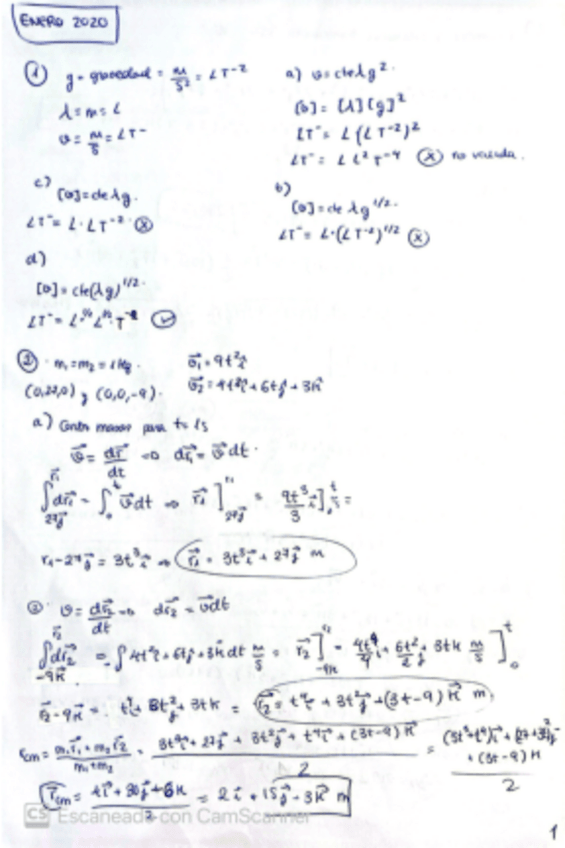 ENERO 2020
① g = gravedad = m/s² = LT⁻²
λ = m = L
v = m/s = LT⁻
a) v = cte λg².
[v] = [λ][g]²
LT⁻ = L(LT⁻²)²
LT⁻ = L L² T⁻⁴ ⓧ no válida.
c)
[v] = cte λg.
LT⁻ = L·LT⁻² ⓧ
b)
[v] = cte λg^1/2.
LT⁻ = L·(LT⁻²)^1/2 ⓧ
d)
[v] = cte(λg)^1/2.
② · m₁ = m₂ = 1kg.
(0,27,0) y (0,0,-9).
v⃗₁ = 9t²i⃗
v⃗₂ = 4t³i⃗ + 6tj⃗ + 3k⃗
a) Centro masas para t = 1s
v⃗ = dr⃗/dt ⇒ dr⃗₁ = v⃗dt.
∫dr⃗₁ = ∫v⃗dt ⇒ r⃗₁] = 9t³/3 i⃗] =
r₁ - 27j⃗ = 3t³i⃗ ⇒ r⃗₁ = 3t³i⃗ + 27j⃗ m
② v⃗ = dr⃗₂/dt ⇒ dr⃗₂ = v⃗dt
r⃗₂ - 9k⃗ = t⁴i + 3t²j + 3tk = r⃗₂ = t⁴i⃗ + 3t²j⃗ + (3t-9)k⃗ m
r cm = m₁r⃗₁ + m₂r⃗₂ / m₁+m₂ = 3t³i⃗ + 27j⃗ + 3t²j⃗ + t⁴i⃗ + (3t-9)k⃗ / 2 = (3t³+t⁴)i⃗ + (27+3t²)j⃗ + (3t-9)k / 2
r⃗cm = 4i⃗ + 30j⃗ - 6k / 2 = 2i⃗ + 15j⃗ - 3k⃗ m
CS Escaneado con CamScanner
1